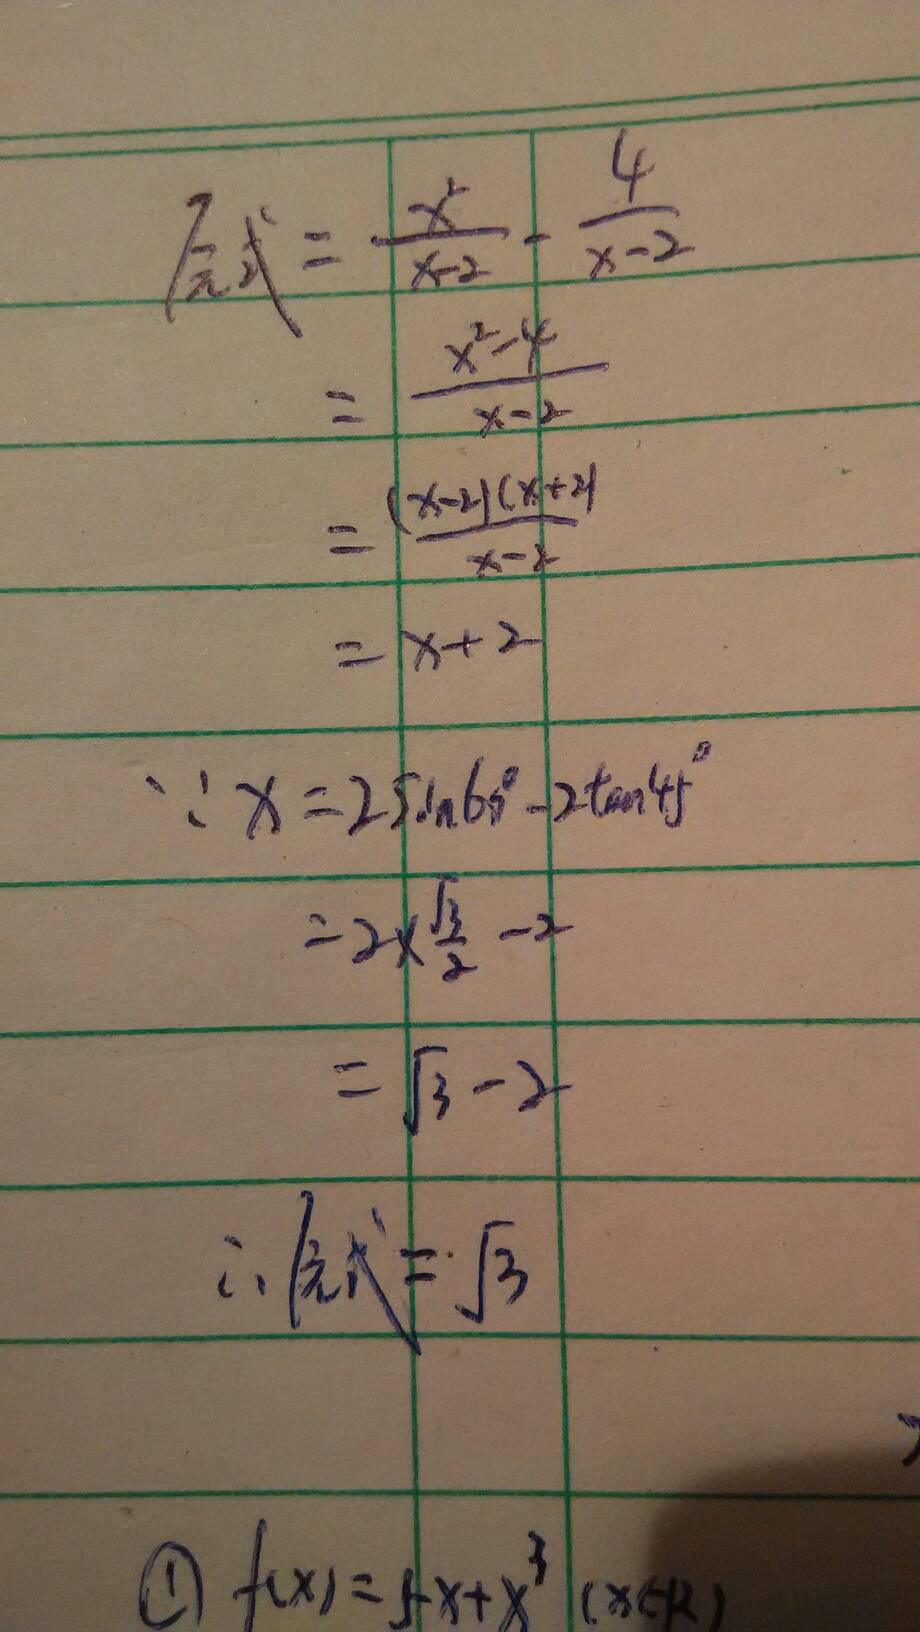 原式 = x²/(x-2) - 4/(x-2)
= (x²-4)/(x-2)
= (x-2)(x+2)/(x-2)
= x+2
∵ x = 2sin60° - 2tan45°
= 2×√3/2 - 2
= √3 - 2
∴ 原式 = √3
① f(x) = 5-x+x³ (x∈R)